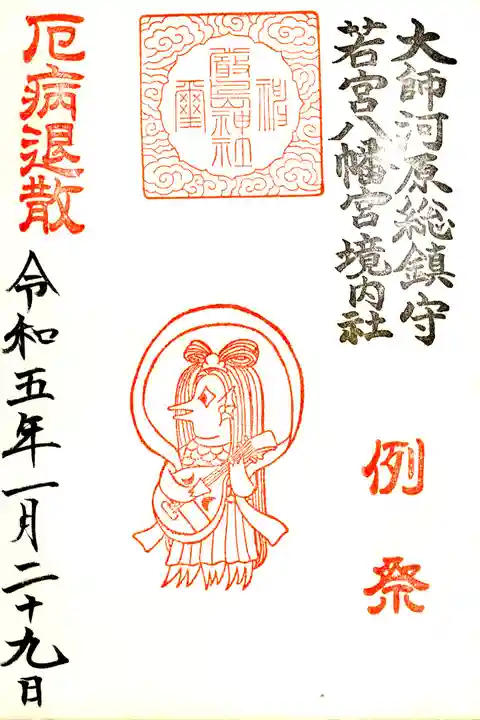 大師河原総鎮守
若宮八幡宮境内社
例祭
厳島神社
厄病退散
令和五年一月二十九日